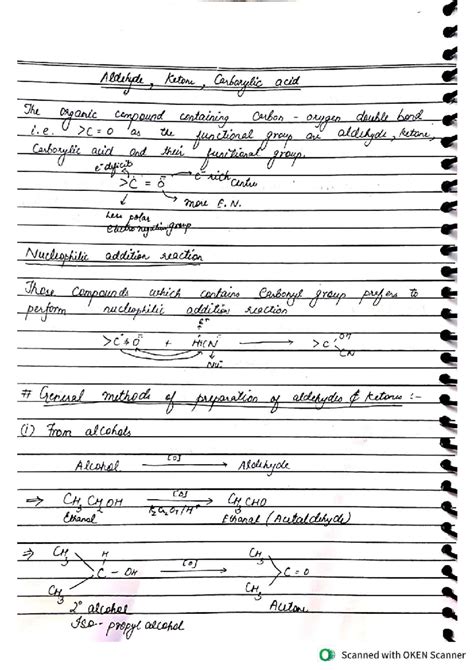 Aldehyde, Ketone, Carboxylic acid
The organic compound containing Carbon - oxygen double bond
i.e. >C=O as the functional group are aldehyde, ketone,
Carboxylic acid and their functional group.
e⁻ deficit
e⁻ rich centre
>C = O
more E.N.
Less polar
Electronegative group
Nucleophilic addition reaction
Those Compounds which contains Carbonyl group prefers to
perform nucleophilic addition reaction
E⁺
>C=O + HCN → >C OH CN
Nu⁻
# General methods of preparation of aldehydes & ketones :-
(i) From alcohols
Alcohol [O] → Aldehyde
⇒ CH3CH2OH [O] → CH3CHO
K2Cr2O7/H⁺
Ethanol Ethanal (Acetaldehyde)
⇒ CH3 H CH3
C - OH [O] → >C=O
CH3 CH3
2° alcohol Acetone
Iso-propyl alcohol
Scanned with OKEN Scanner